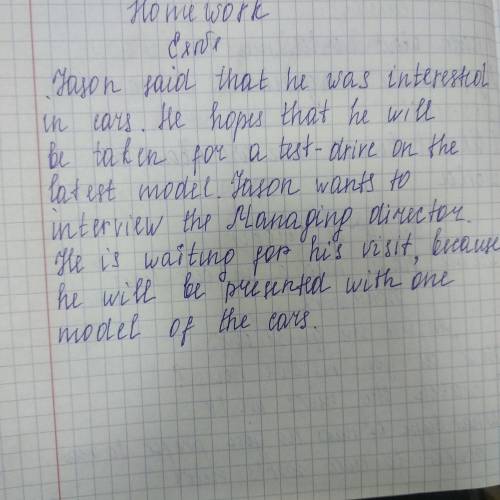 Homework
Jason said that he was interested
in cars. He hopes that he will
be taken for a test-drive on the
latest model. Jason wants to
interview the Managing director.
He is waiting for his visit, because
he will be presented with one
model of the cars.